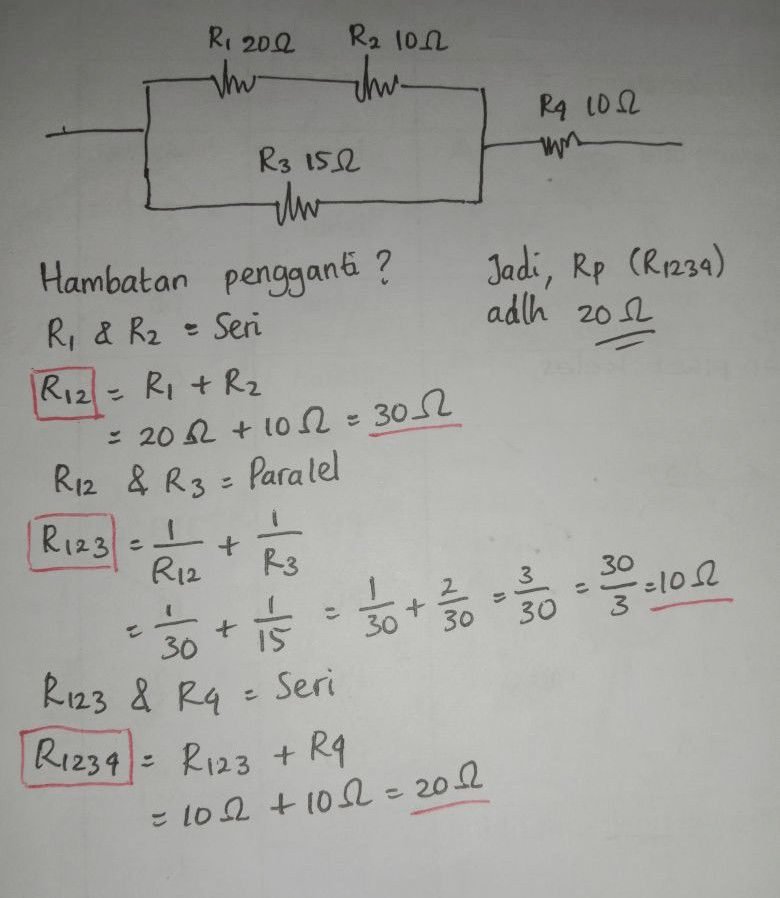 R1 20Ω R2 10Ω
R4 10Ω
R3 15Ω
Hambatan pengganti ?
Jadi, Rp (R1234)
adlh 20 Ω
R1 & R2 = Seri
R12 = R1 + R2
= 20 Ω + 10 Ω = 30 Ω
R12 & R3 = Paralel
R123 = 1/R12 + 1/R3
= 1/30 + 1/15 = 1/30 + 2/30 = 3/30 = 30/3 = 10 Ω
R123 & R4 = Seri
R1234 = R123 + R4
= 10 Ω + 10 Ω = 20 Ω